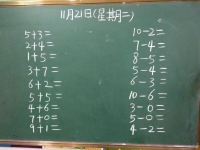 11月21日(星期二)
5+3=
2+4=
1+5=
3+7=
6+2=
5+5=
4+6=
7+0=
9+1=
10-2=
7-4=
8-5=
5-4=
6-3=
10-6=
3-0=
5-0=
4-2=